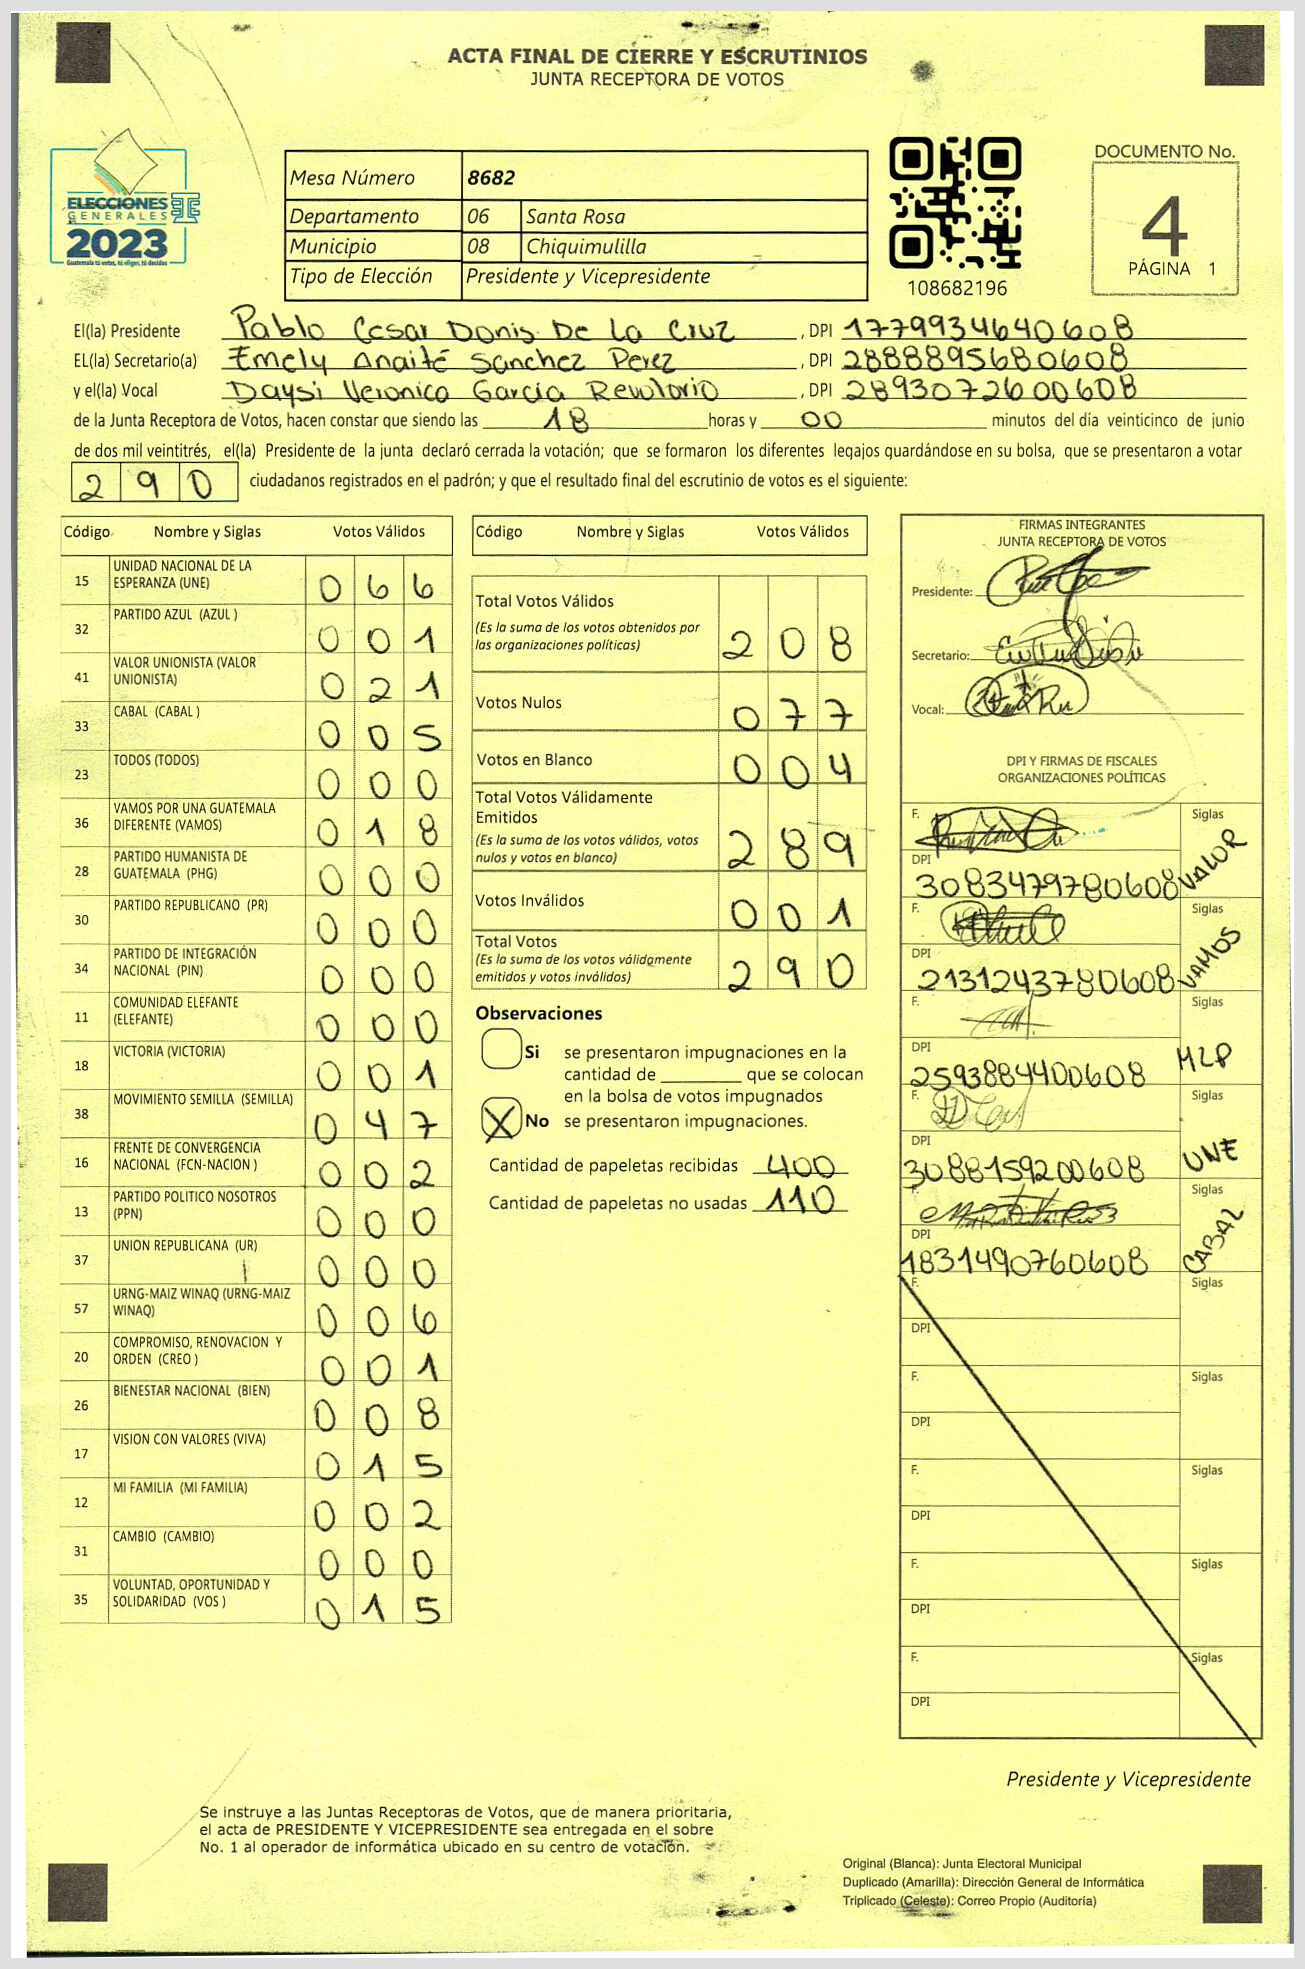 ACTA FINAL DE CIERRE Y ESCRUTINIOS
JUNTA RECEPTORA DE VOTOS
ELECCIONES
GENERALES
2023
Guatemala tú votas, tú eliges, tú decides
Mesa Número 8682
Departamento 06 Santa Rosa
Municipio 08 Chiquimulilla
Tipo de Elección Presidente y Vicepresidente
108682196
DOCUMENTO No.
4
PÁGINA 1
El(la) Presidente Pablo Cesar Donis De La Cruz , DPI 1779934640608
EL(la) Secretario(a) Emely Anaité Sanchez Perez , DPI 2888895680608
y el(la) Vocal Daysi Veronica Garcia Revolorio , DPI 2893072600608
de la Junta Receptora de Votos, hacen constar que siendo las 18 horas y 00 minutos del día veinticinco de junio
de dos mil veintitrés, el(la) Presidente de la junta declaró cerrada la votación; que se formaron los diferentes legajos guardándose en su bolsa, que se presentaron a votar
290 ciudadanos registrados en el padrón; y que el resultado final del escrutinio de votos es el siguiente:
Código Nombre y Siglas Votos Válidos
15 UNIDAD NACIONAL DE LA ESPERANZA (UNE) 066
32 PARTIDO AZUL (AZUL ) 001
41 VALOR UNIONISTA (VALOR UNIONISTA) 021
33 CABAL (CABAL ) 005
23 TODOS (TODOS) 000
36 VAMOS POR UNA GUATEMALA DIFERENTE (VAMOS) 018
28 PARTIDO HUMANISTA DE GUATEMALA (PHG) 000
30 PARTIDO REPUBLICANO (PR) 000
34 PARTIDO DE INTEGRACIÓN NACIONAL (PIN) 000
11 COMUNIDAD ELEFANTE (ELEFANTE) 000
18 VICTORIA (VICTORIA) 001
38 MOVIMIENTO SEMILLA (SEMILLA) 047
16 FRENTE DE CONVERGENCIA NACIONAL (FCN-NACION ) 002
13 PARTIDO POLITICO NOSOTROS (PPN) 000
37 UNION REPUBLICANA (UR) 000
57 URNG-MAIZ WINAQ (URNG-MAIZ WINAQ) 006
20 COMPROMISO, RENOVACION Y ORDEN (CREO ) 001
26 BIENESTAR NACIONAL (BIEN) 008
17 VISION CON VALORES (VIVA) 015
12 MI FAMILIA (MI FAMILIA) 002
31 CAMBIO (CAMBIO) 000
35 VOLUNTAD, OPORTUNIDAD Y SOLIDARIDAD (VOS ) 015
Código Nombre y Siglas Votos Válidos
Total Votos Válidos
(Es la suma de los votos obtenidos por
las organizaciones políticas) 208
Votos Nulos 077
Votos en Blanco 004
Total Votos Válidamente
Emitidos
(Es la suma de los votos válidos, votos
nulos y votos en blanco) 289
Votos Inválidos 001
Total Votos
(Es la suma de los votos válidamente
emitidos y votos inválidos) 290
Observaciones
Si se presentaron impugnaciones en la
cantidad de ________ que se colocan
en la bolsa de votos impugnados
X No se presentaron impugnaciones.
Cantidad de papeletas recibidas 400
Cantidad de papeletas no usadas 110
FIRMAS INTEGRANTES
JUNTA RECEPTORA DE VOTOS
Presidente:
Secretario:
Vocal:
DPI Y FIRMAS DE FISCALES
ORGANIZACIONES POLÍTICAS
F. Siglas
DPI 3083479780608 VALOR
F. Siglas
DPI 2131243780608 VAMOS
F. Siglas
DPI 2593884400608 MLP
F. Siglas
DPI 3088159200608 UNE
F. Siglas
DPI 1831490760608 CABAL
F. Siglas
DPI
F. Siglas
DPI
F. Siglas
DPI
F. Siglas
DPI
F. Siglas
DPI
Presidente y Vicepresidente
Se instruye a las Juntas Receptoras de Votos, que de manera prioritaria,
el acta de PRESIDENTE Y VICEPRESIDENTE sea entregada en el sobre
No. 1 al operador de informática ubicado en su centro de votación.
Original (Blanca): Junta Electoral Municipal
Duplicado (Amarilla): Dirección General de Informática
Triplicado (Celeste): Correo Propio (Auditoría)